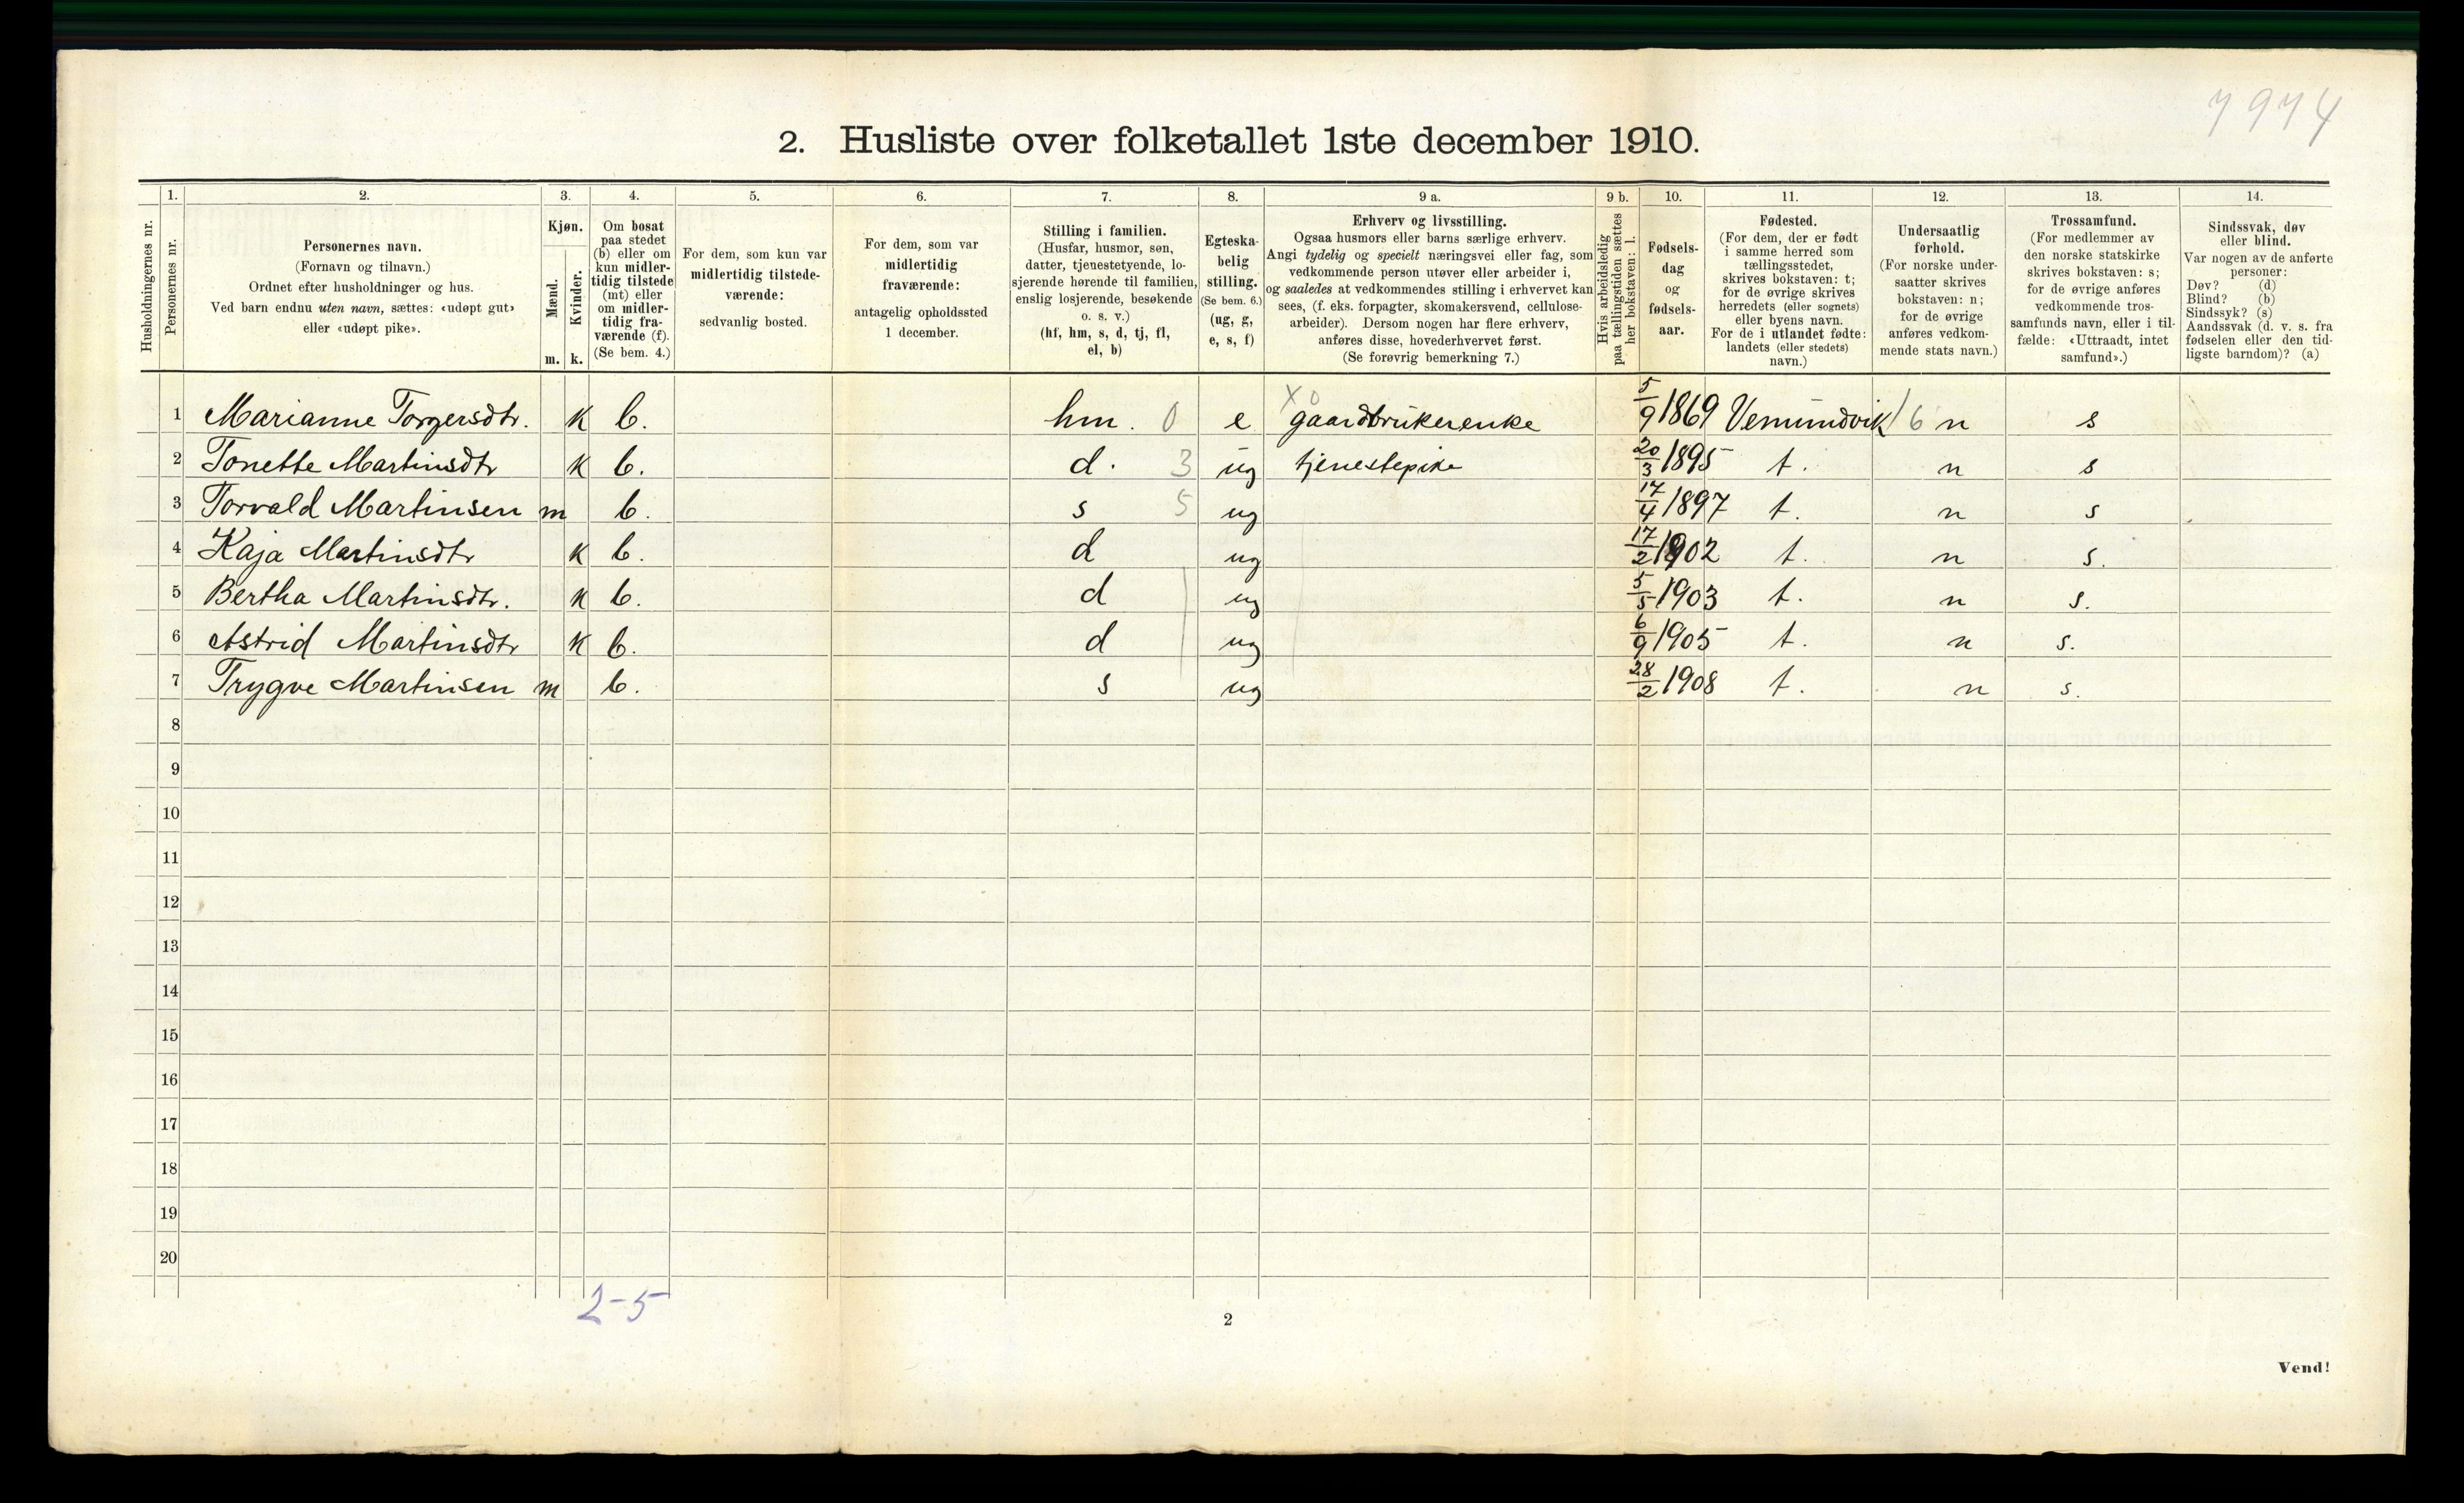 7974
2. Husliste over folketallet 1ste december 1910.
Husholdningernes nr.
1.
Personernes nr.
2.
Personernes navn.
(Fornavn og tilnavn.)
Ordnet efter husholdninger og hus.
Ved barn endnu uten navn, sættes: «udøpt gut»
eller «udøpt pike».
3.
Kjøn.
Mænd.
Kvinder.
m. k.
4.
Om bosat
paa stedet
(b) eller om
kun midler-
tidig tilstede
(mt) eller
om midler-
tidig fra-
værende (f).
(Se bem. 4.)
5.
For dem, som kun var
midlertidig tilstede-
værende:
sedvanlig bosted.
6.
For dem, som var
midlertidig
fraværende:
antagelig opholdssted
1 december.
7.
Stilling i familien.
(Husfar, husmor, søn,
datter, tjenestetyende, lo-
sjerende hørende til familien,
enslig losjerende, besøkende
o. s. v.)
(hf, hm, s, d, tj, fl,
el, b)
8.
Egteska-
belig
stilling.
(Se bem. 6.)
(ug, g,
e, s, f)
9 a.
Erhverv og livsstilling.
Ogsaa husmors eller barns særlige erhverv.
Angi tydelig og specielt næringsvei eller fag, som
vedkommende person utøver eller arbeider i,
og saaledes at vedkommendes stilling i erhvervet kan
sees, (f. eks. forpagter, skomakersvend, cellulose-
arbeider). Dersom nogen har flere erhverv,
anføres disse, hovederhvervet først.
(Se forøvrig bemerkning 7.)
9 b.
Hvis arbeidsledig
paa tællingstiden sættes
her bokstaven: l.
10.
Fødsels-
dag
og
fødsels-
aar.
11.
Fødested.
(For dem, der er født
i samme herred som
tællingsstedet,
skrives bokstaven: t;
for de øvrige skrives
herredets (eller sognets)
eller byens navn.
For de i utlandet fødte:
landets (eller stedets)
navn.)
12.
Undersaatlig
forhold.
(For norske under-
saatter skrives
bokstaven: n;
for de øvrige
anføres vedkom-
mende stats navn.)
13.
Trossamfund.
(For medlemmer av
den norske statskirke
skrives bokstaven: s;
for de øvrige anføres
vedkommende tros-
samfunds navn, eller i til-
fælde: «Uttraadt, intet
samfund».)
14.
Sindssvak, døv
eller blind.
Var nogen av de anførte
personer:
Døv? (d)
Blind? (b)
Sindssyk? (s)
Aandssvak (d. v. s. fra
fødselen eller den tid-
ligste barndom)? (a)
1 Marianne Torgersdtr. k b. hm. 0 e x0 gaardbrukerenke 5/9 1869 Vemundvik 16 n s
2 Tonette Martinsdtr k b. d. 3 ug tjenestepike 20/3 1895 t. n s
3 Torvald Martinsen m b. s 5 ug 17/4 1897 t. n s
4 Kaja Martinsdtr k b. d ug 17/2 1902 t. n s.
5 Bertha Martinsdtr. k b. d ug 5/5 1903 t. n s.
6 Astrid Martinsdtr k b. d ug 6/9 1905 t. n s.
7 Trygve Martinsen m b. s ug 28/2 1908 t. n s.
8
9
10
11
12
13
14
15
16
17
18
19
20
2-5
2
Vend!